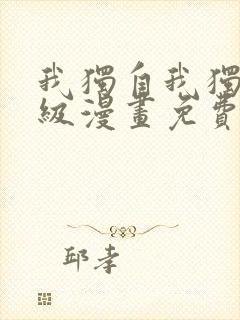 我獨自我獨
級漫畫免費
邱孝